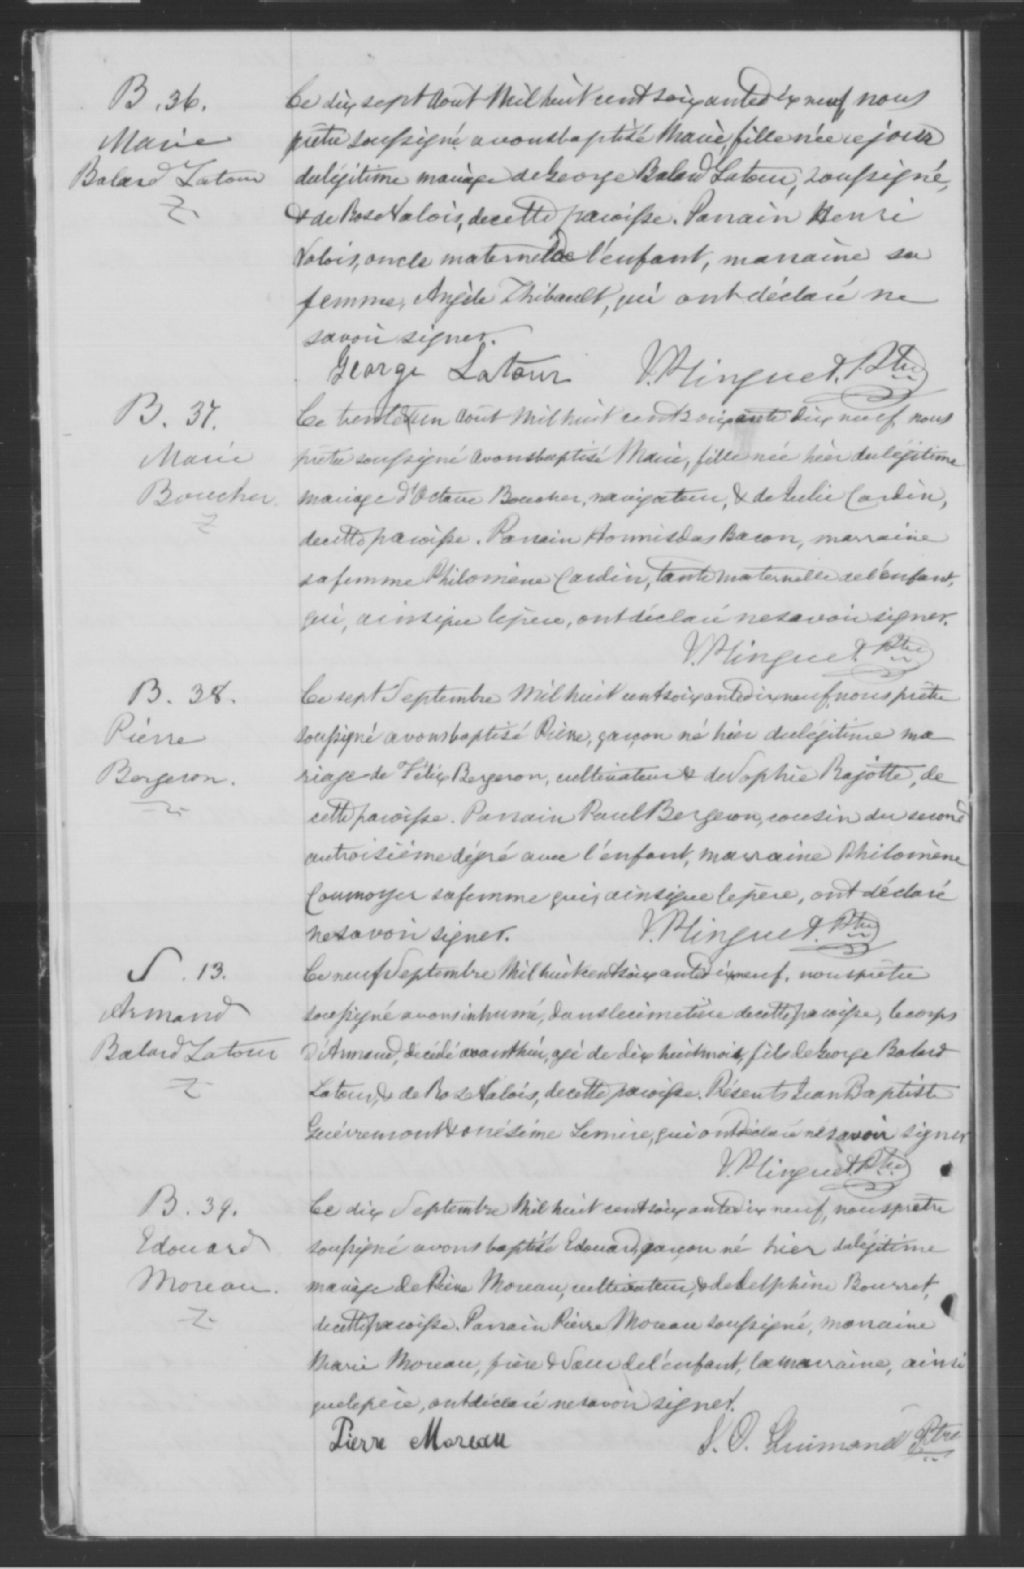 B. 36.
Marie
Balard Latour
Ce dix sept Aout Mil huit cent soixante dix neuf, nous
prêtre soussigné avons baptisé Marie fille née ce jour
du légitime mariage de George Balard Latour, soussigné,
& de Rose Valois, de cette paroisse. Parrain Henri
Valois, oncle maternel de l'enfant, marraine sa
femme, Angèle Thibault, qui ont déclaré ne
savoir signer.
George Latour V. Plinguet. Ptre
B. 37.
Marie
Boucher
Ce trente & un Aout Mil huit cent soixante dix neuf, nous
prêtre soussigné avons baptisé Marie, fille née hier du légitime
mariage d'Octave Boucher, navigateur, & de Julie Cardin,
de cette paroisse. Parrain Hormisdas Bacon, marraine
sa femme Philomène Cardin, tante maternelle de l'enfant,
qui, ainsi que le père, ont déclaré ne savoir signer.
V. Plinguet. Ptre
B. 38.
Pierre
Bergeron.
Ce sept Septembre Mil huit cent soixante dix neuf, nous prêtre
soussigné avons baptisé Pierre, garçon né hier du légitime ma
riage de Félix Bergeron, cultivateur & de Sophie Rajotte, de
cette paroisse. Parrain Paul Bergeron, cousin du second
au troisième dégré avec l'enfant, marraine Philomène
Cournoyer sa femme qui, ainsi que le père, ont déclaré
ne savoir signer. V. Plinguet. Ptre
S. 13.
Armand
Balard Latour
Ce neuf Septembre Mil huit cent soixante dix neuf, nous prêtre
soussigné avons inhumé, dans le cimetière de cette paroisse, le corps
d'Armand, décédé avant hier, agé de dix huit mois, fils de George Balard
Latour, & de Rose Valois, de cette paroisse. Présents Jean Baptiste
Guévremont & Onésime Lemire, qui ont déclaré ne savoir signer
V. Plinguet. Ptre
B. 39.
Edouard
Moreau.
Ce dix Septembre Mil huit cent soixante dix neuf, nous prêtre
soussigné avons baptisé Edouard, garçon né hier du légitime
mariage de Pierre Moreau, cultivateur, & de Delphine Bourret,
de cette paroisse. Parrain Pierre Moreau soussigné, marraine
Marie Moreau, frère & sœur de l'enfant, la marraine, ainsi
que le père, ont déclaré ne savoir signer.
Pierre Moreau Ptre